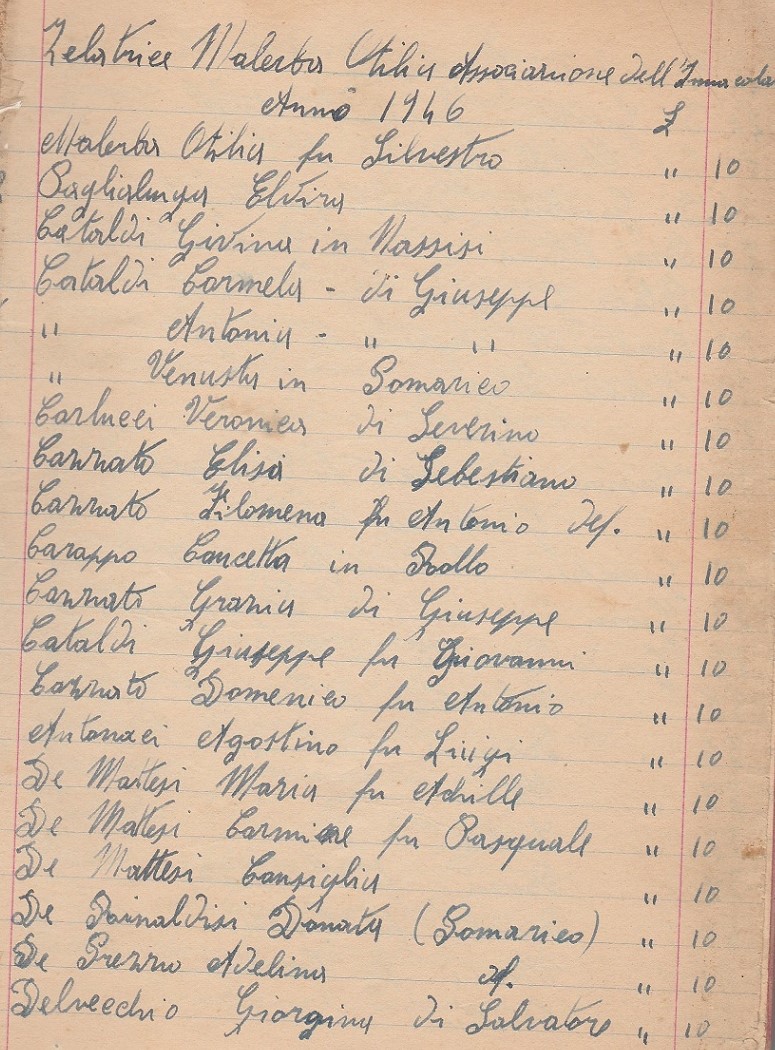 Zelatrice Malerba Otilia Associazione dell'Immacola
Anno 1946 £
Malerba Otilia fu Silvestro " 10
Paglialunga Elvira " 10
Cataldi Givina in Massisi " 10
Cataldi Carmela - di Giuseppe " 10
" Antonia - " " " 10
" Venusta in Pomarico " 10
Carlucci Veronica di Severino " 10
Cazzato Elisa di Sebestiano " 10
Cazzato Filomena fu Antonio def. " 10
Carappo Concetta in Rollo " 10
Cazzato Grazia di Giuseppe " 10
Cataldi Giuseppe fu Giovanni " 10
Cazzato Domenico fu Antonio " 10
Antonaci Agostino fu Luigi " 10
De Mattesi Maria fu Achille " 10
De Mattesi Carmine fu Pasquale " 10
De Mattesi Consiglia " 10
De Rinaldisi Donata (Pomarico) " 10
De Prezzo Adelina " 10
Delvecchio Giorgina di Salvatore " 10